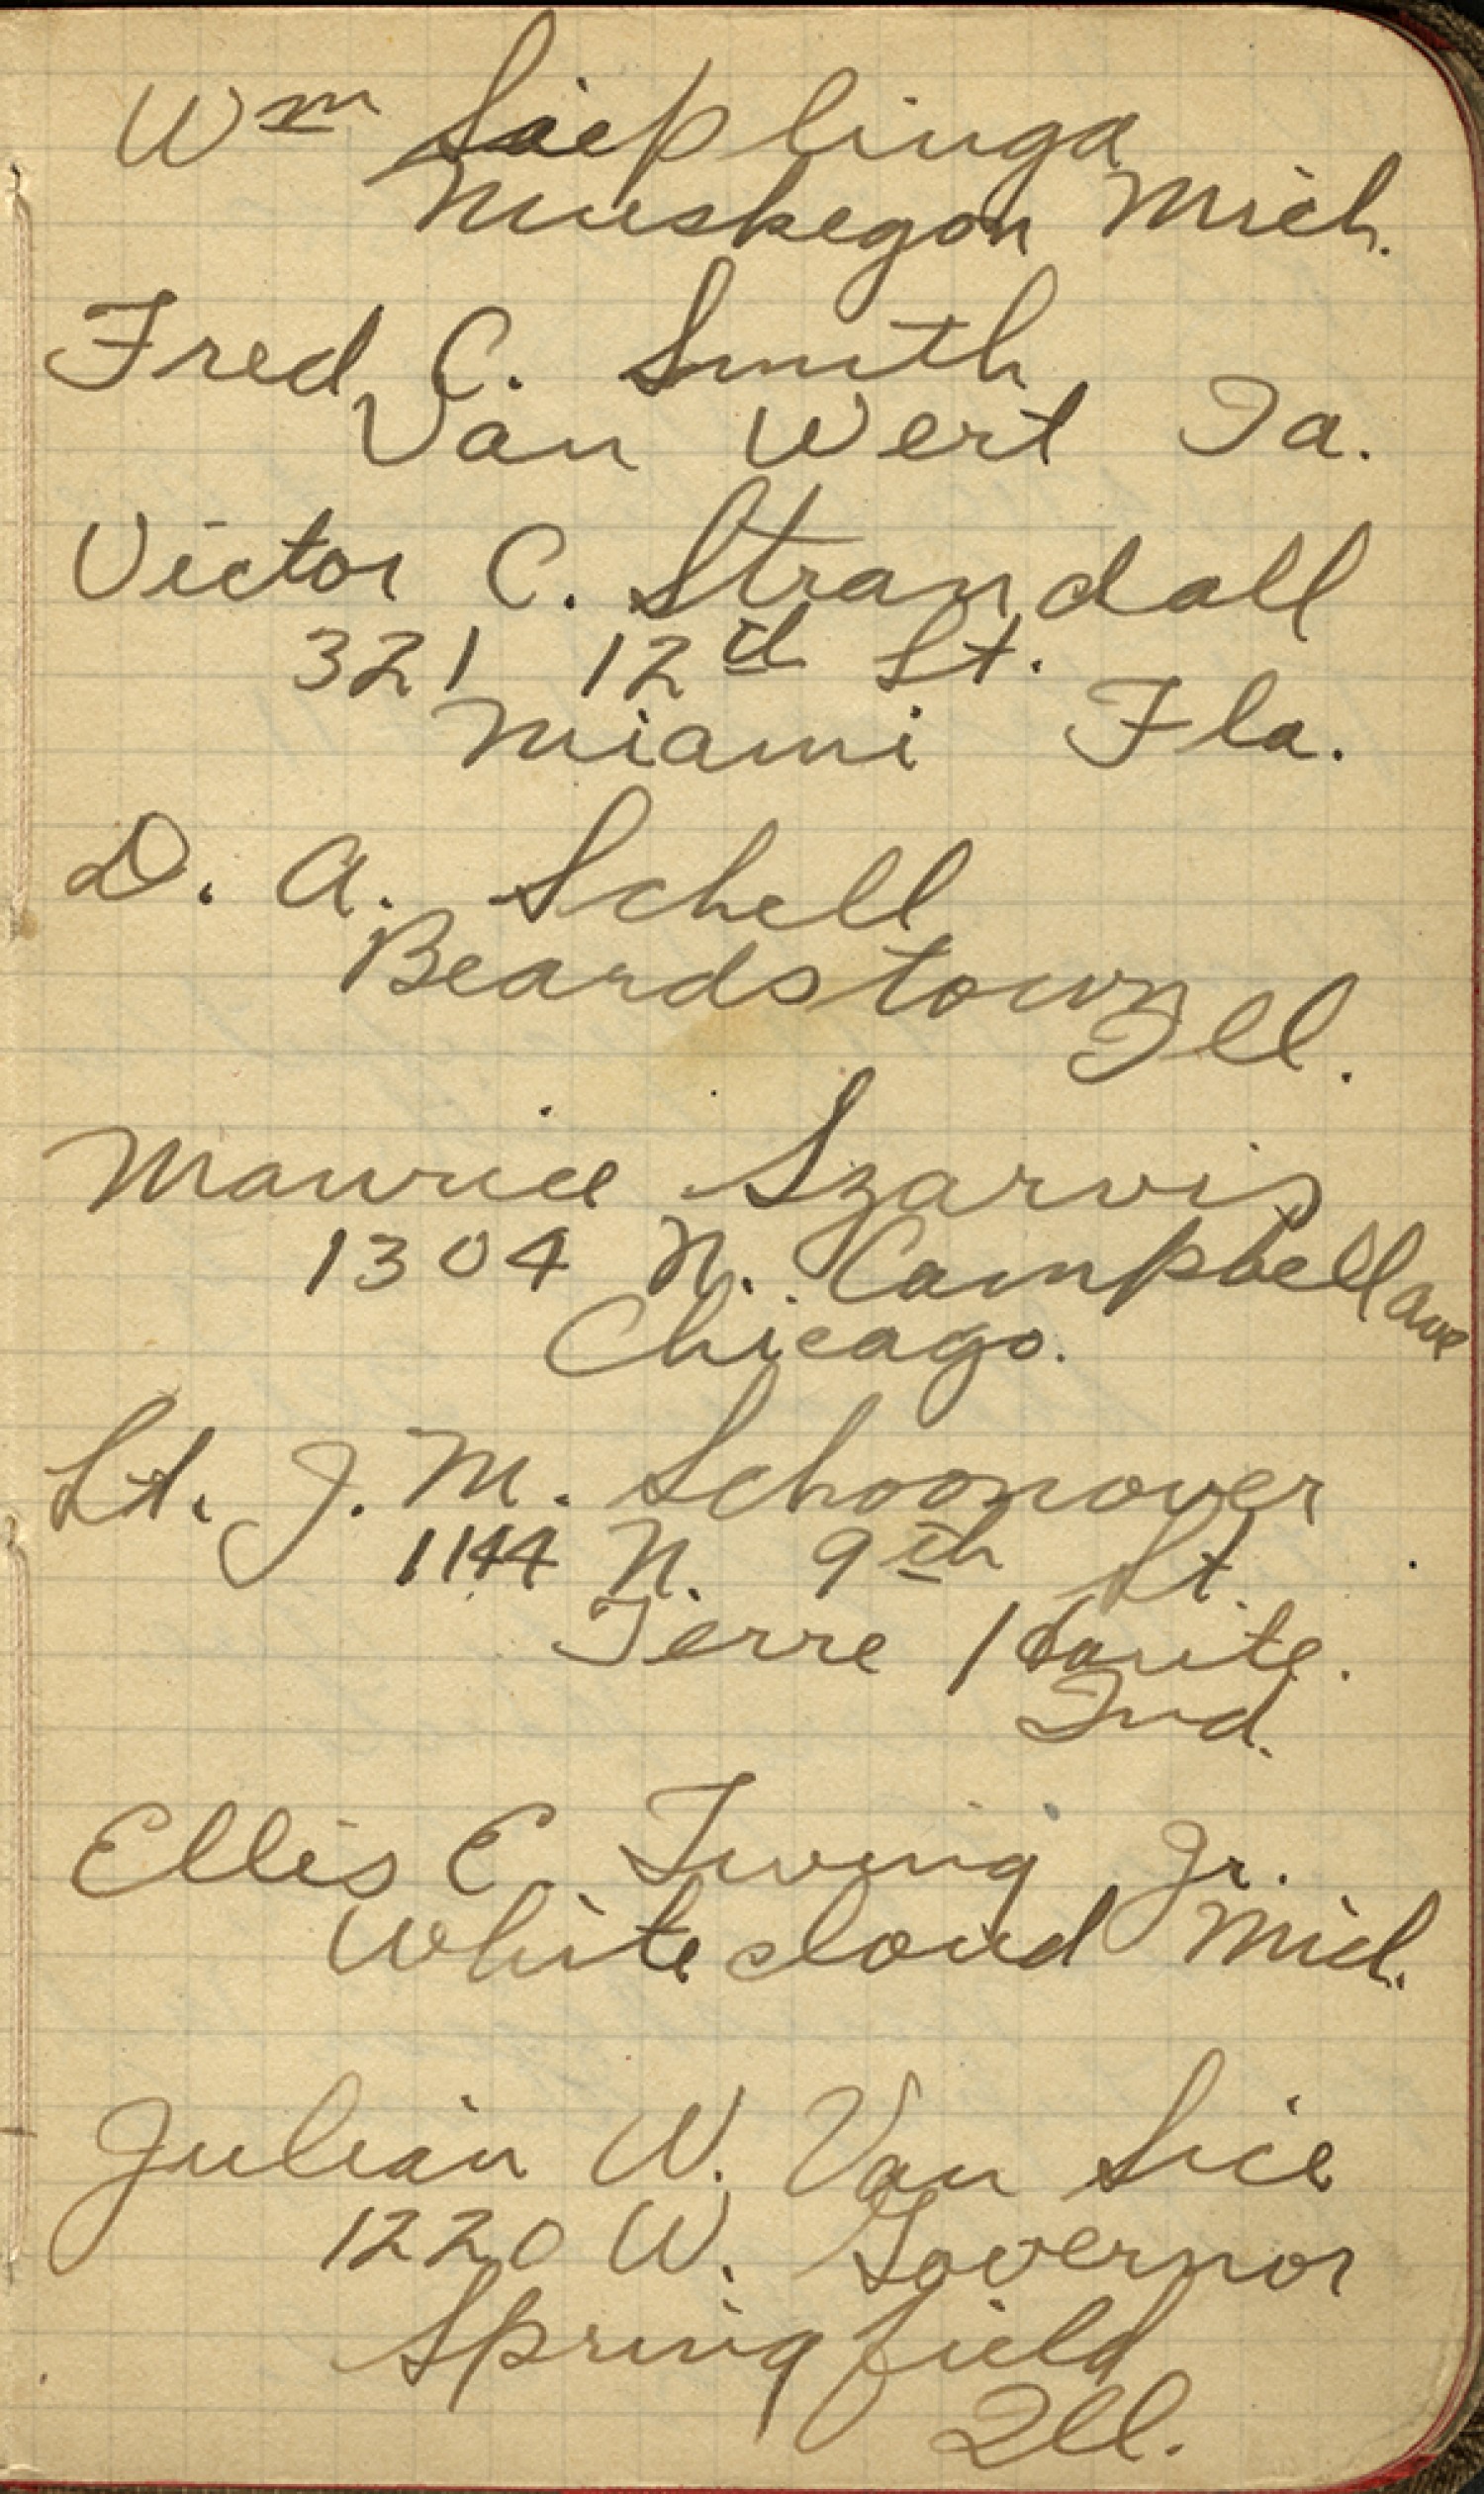 Wm Sieplinga
Muskegon Mich.
Fred C. Smith
Van Wert Ia.
Victor C. Strandall
321 12th St.
Miami Fla.
D. A. Schell
Beardstown
Ill.
Maurice Szarvis
1304 N. Campbell Ave
Chicago.
Lt. J. M. Schoonover
1144 N. 9th St.
Terre Haute.
Ind.
Ellis E. Twing Jr.
White cloud Mich.
Julian W. Van Sice
1220 W. Governor
Springfield
Ill.